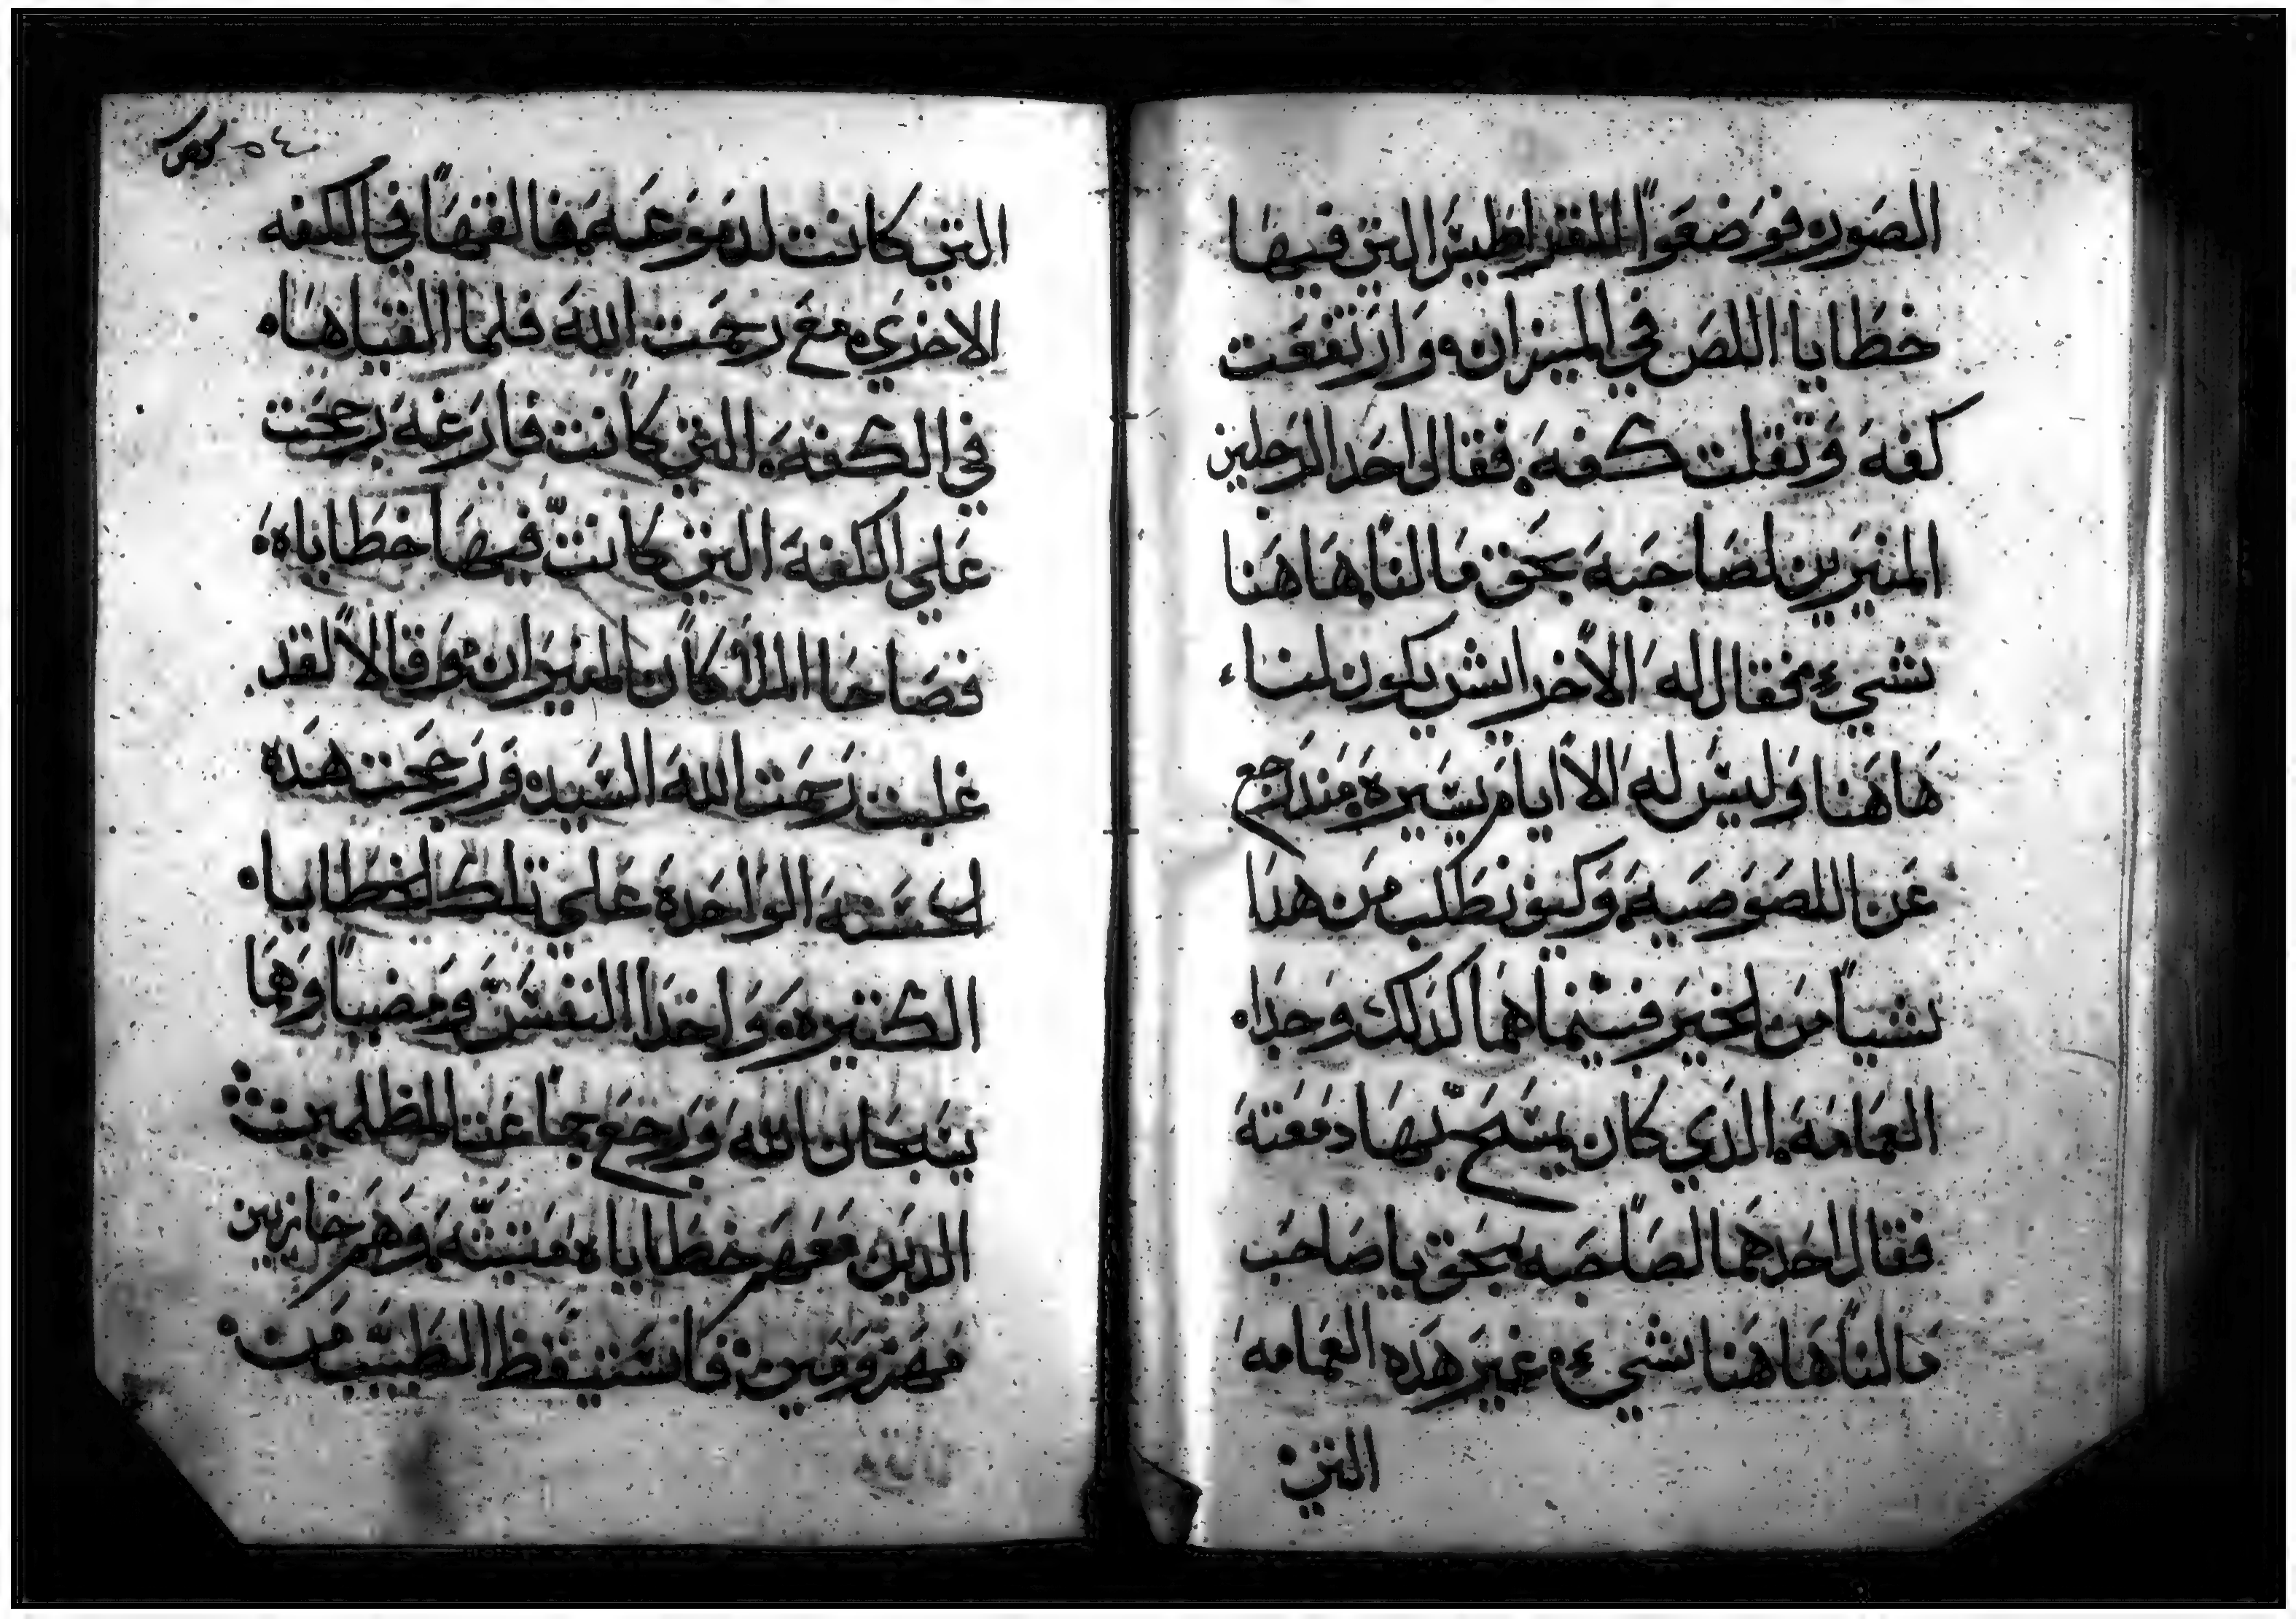 الصوره فوضعوا القراطيس التي فيها
خطايا اللص في الميزان وارتفعت
كفه وتقلت كفه فقال احد الرجلين
المنيرين لصاحبه بحق ما لنا هاهنا
شيء فقال له الاخر ايش يكون لنا
هاهنا وليس له الا ايام يسيره مند رجع
عن اللصوصيه وكيف نطلب من هدا
شيا من الخير فبينما هما كدلك وجدا
العمامه الدي كان يمسح بها دمعته
فقال احدهما لصاحبه بحق يا صاحب
ما لنا هاهنا شيء غير هده العمامه
التي
التي كانت لدموعه فالقها في الكفه
الاخري مع رحمت الله فلما القياها
في الكفه التي كانت فارغه رجحت
علي الكفه التي كانت فيها خطاياه
فصاحا الملاكان المنيران وقالا لقد
غلبت رحمت الله السيد ورجحت هده
الحسنه الواحده علي تلك الخطايا
الكتيره واخدا النفس ومضيا وهما
يسبحان الله ورجع جماعت المظلمين
الدين معهم خطاياه وهم خازيين
مهزومين فاستيقظ الطبيب من